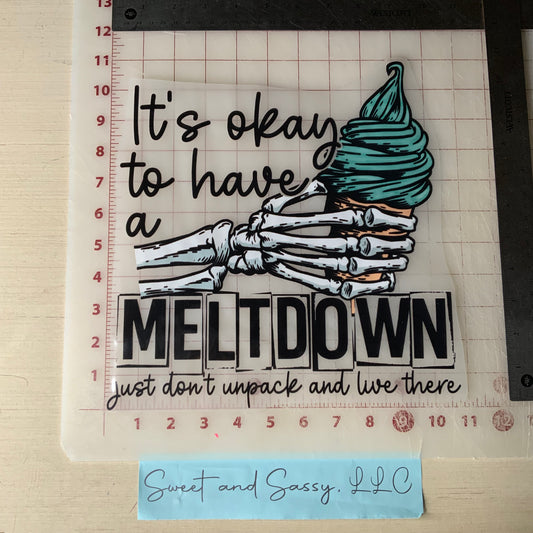 13
12
11
10
9
8
7
6
5
4
3
2
1
It's okay
to have
a
MELTDOWN
just don't unpack and live there
1 2 3 4 5 6 7 8 9 10 11 12
Sweet and Sassy, LLC
WESTCOTT